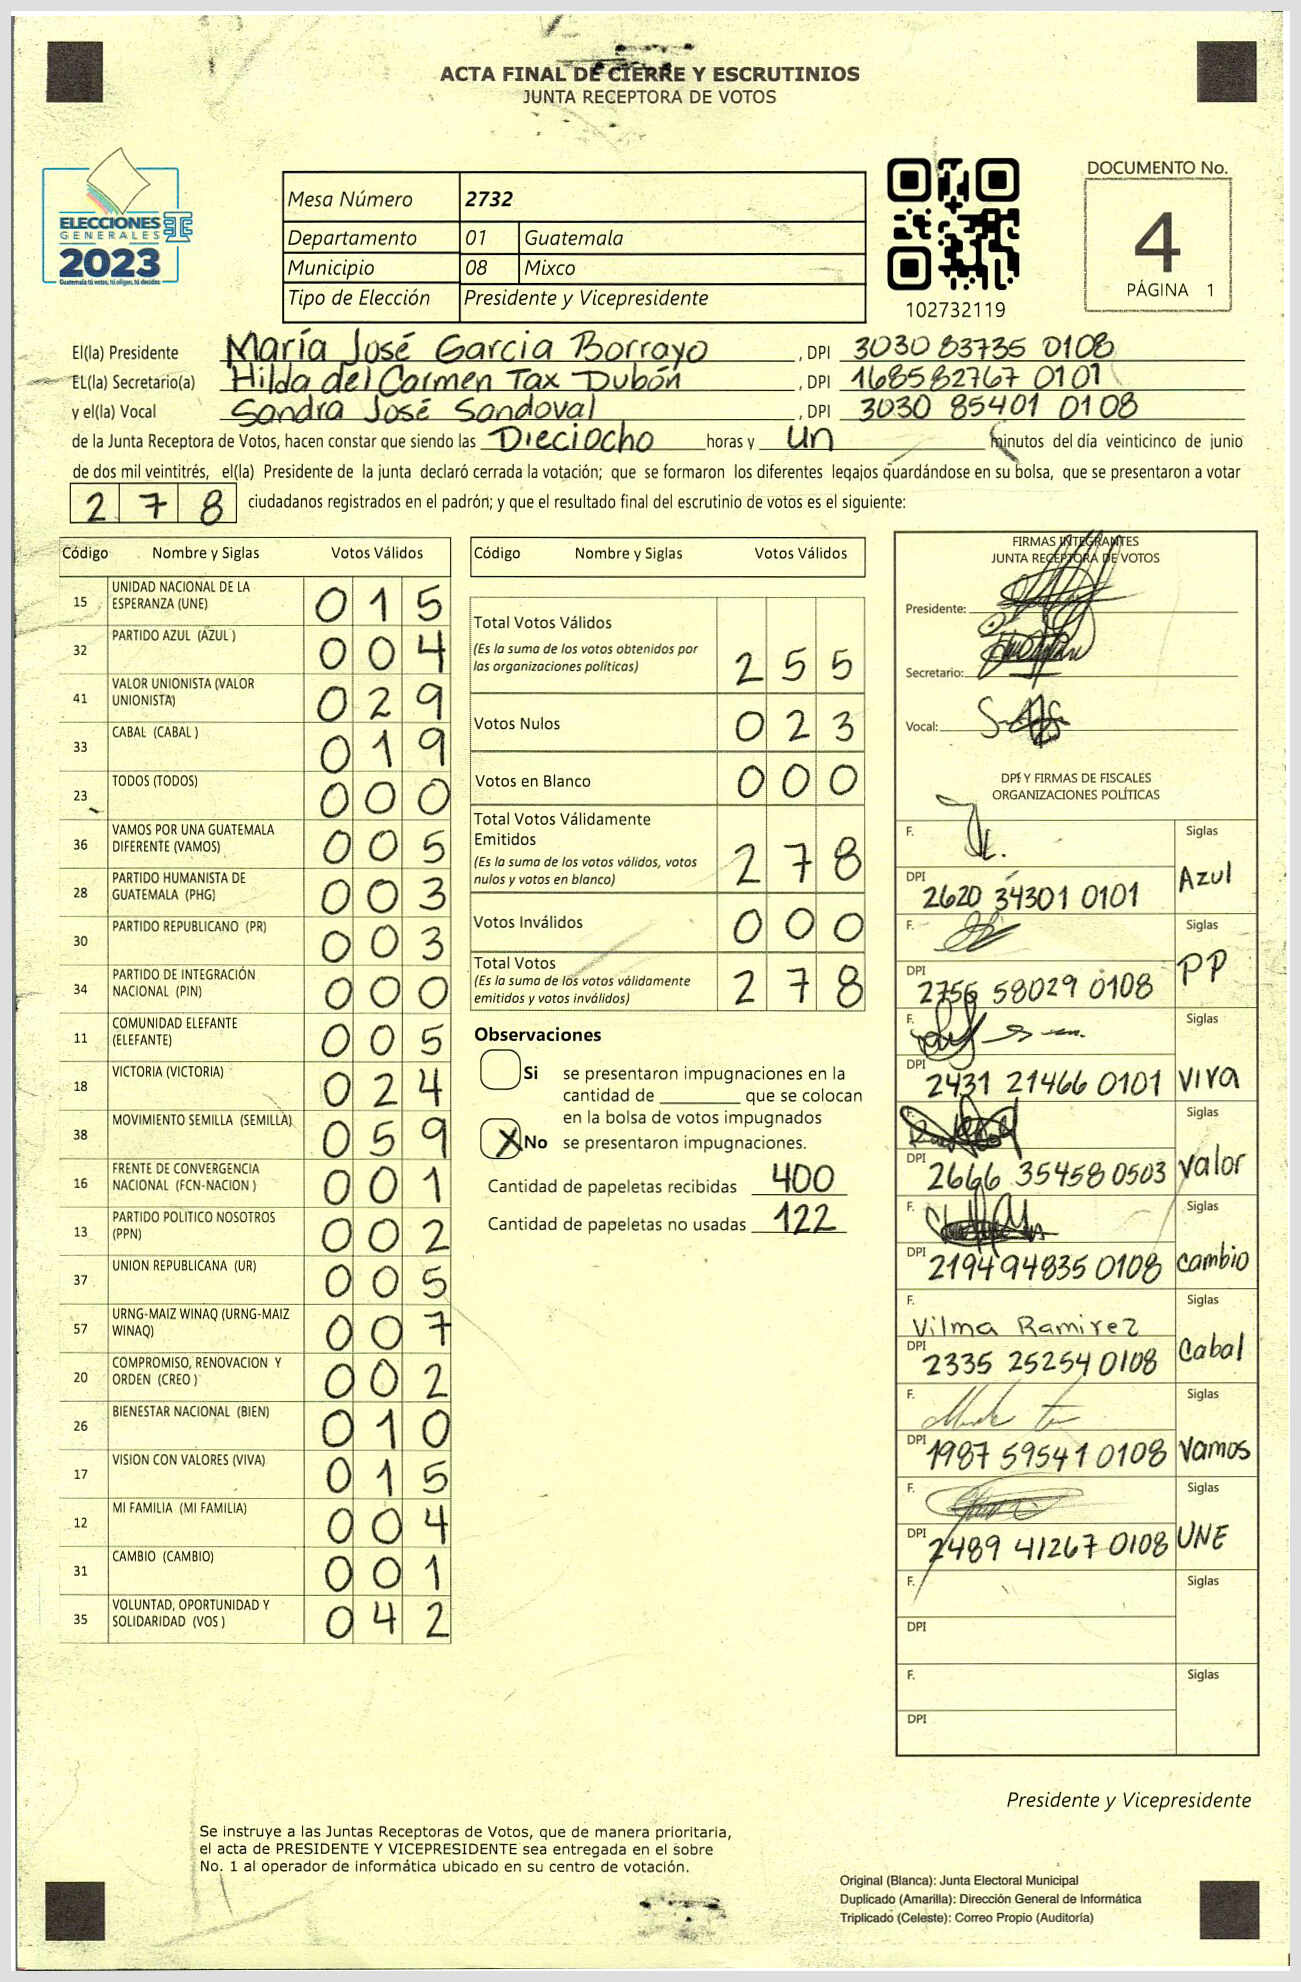 ACTA FINAL DE CIERRE Y ESCRUTINIOS
JUNTA RECEPTORA DE VOTOS
ELECCIONES
GENERALES
2023
Guatemala tú votas, tú eliges, tú decides
Mesa Número 2732
Departamento 01 Guatemala
Municipio 08 Mixco
Tipo de Elección Presidente y Vicepresidente
102732119
DOCUMENTO No.
4
PÁGINA 1
El(la) Presidente María José Garcia Borrayo , DPI 3030 83735 0108
EL(la) Secretario(a) Hilda del Carmen Tax Dubón , DPI 168582767 0101
y el(la) Vocal Sandra José Sandoval , DPI 3030 85401 0108
de la Junta Receptora de Votos, hacen constar que siendo las Dieciocho horas y un minutos del día veinticinco de junio
de dos mil veintitrés, el(la) Presidente de la junta declaró cerrada la votación; que se formaron los diferentes legajos guardándose en su bolsa, que se presentaron a votar
2 7 8 ciudadanos registrados en el padrón; y que el resultado final del escrutinio de votos es el siguiente:
Código Nombre y Siglas Votos Válidos
15 UNIDAD NACIONAL DE LA ESPERANZA (UNE) 0 1 5
32 PARTIDO AZUL (AZUL ) 0 0 4
41 VALOR UNIONISTA (VALOR UNIONISTA) 0 2 9
33 CABAL (CABAL ) 0 1 9
23 TODOS (TODOS) 0 0 0
36 VAMOS POR UNA GUATEMALA DIFERENTE (VAMOS) 0 0 5
28 PARTIDO HUMANISTA DE GUATEMALA (PHG) 0 0 3
30 PARTIDO REPUBLICANO (PR) 0 0 3
34 PARTIDO DE INTEGRACIÓN NACIONAL (PIN) 0 0 0
11 COMUNIDAD ELEFANTE (ELEFANTE) 0 0 5
18 VICTORIA (VICTORIA) 0 2 4
38 MOVIMIENTO SEMILLA (SEMILLA) 0 5 9
16 FRENTE DE CONVERGENCIA NACIONAL (FCN-NACION ) 0 0 1
13 PARTIDO POLITICO NOSOTROS (PPN) 0 0 2
37 UNION REPUBLICANA (UR) 0 0 5
57 URNG-MAIZ WINAQ (URNG-MAIZ WINAQ) 0 0 7
20 COMPROMISO, RENOVACION Y ORDEN (CREO ) 0 0 2
26 BIENESTAR NACIONAL (BIEN) 0 1 0
17 VISION CON VALORES (VIVA) 0 1 5
12 MI FAMILIA (MI FAMILIA) 0 0 4
31 CAMBIO (CAMBIO) 0 0 1
35 VOLUNTAD, OPORTUNIDAD Y SOLIDARIDAD (VOS ) 0 4 2
Código Nombre y Siglas Votos Válidos
Total Votos Válidos
(Es la suma de los votos obtenidos por
las organizaciones políticas) 2 5 5
Votos Nulos 0 2 3
Votos en Blanco 0 0 0
Total Votos Válidamente
Emitidos
(Es la suma de los votos válidos, votos
nulos y votos en blanco) 2 7 8
Votos Inválidos 0 0 0
Total Votos
(Es la suma de los votos válidamente
emitidos y votos inválidos) 2 7 8
Observaciones
Si se presentaron impugnaciones en la
cantidad de ________ que se colocan
en la bolsa de votos impugnados
X No se presentaron impugnaciones.
Cantidad de papeletas recibidas 400
Cantidad de papeletas no usadas 122
FIRMAS INTEGRANTES
JUNTA RECEPTORA DE VOTOS
Presidente:
Secretario:
Vocal:
DPI Y FIRMAS DE FISCALES
ORGANIZACIONES POLÍTICAS
F. Siglas
DPI 2620 34301 0101 Azul
F. Siglas
DPI 2756 58029 0108 PP
F. Siglas
DPI 2431 21466 0101 viva
F. Siglas
DPI 2666 35458 0503 valor
F. Siglas
DPI 2194 94835 0108 cambio
F. Vilma Ramirez Siglas
DPI 2335 25254 0108 Cabal
F. Siglas
DPI 1987 59541 0108 vamos
F. Siglas
DPI 2489 41267 0108 UNE
F. Siglas
DPI
F. Siglas
DPI
Presidente y Vicepresidente
Se instruye a las Juntas Receptoras de Votos, que de manera prioritaria,
el acta de PRESIDENTE Y VICEPRESIDENTE sea entregada en el sobre
No. 1 al operador de informática ubicado en su centro de votación.
Original (Blanca): Junta Electoral Municipal
Duplicado (Amarilla): Dirección General de Informática
Triplicado (Celeste): Correo Propio (Auditoría)